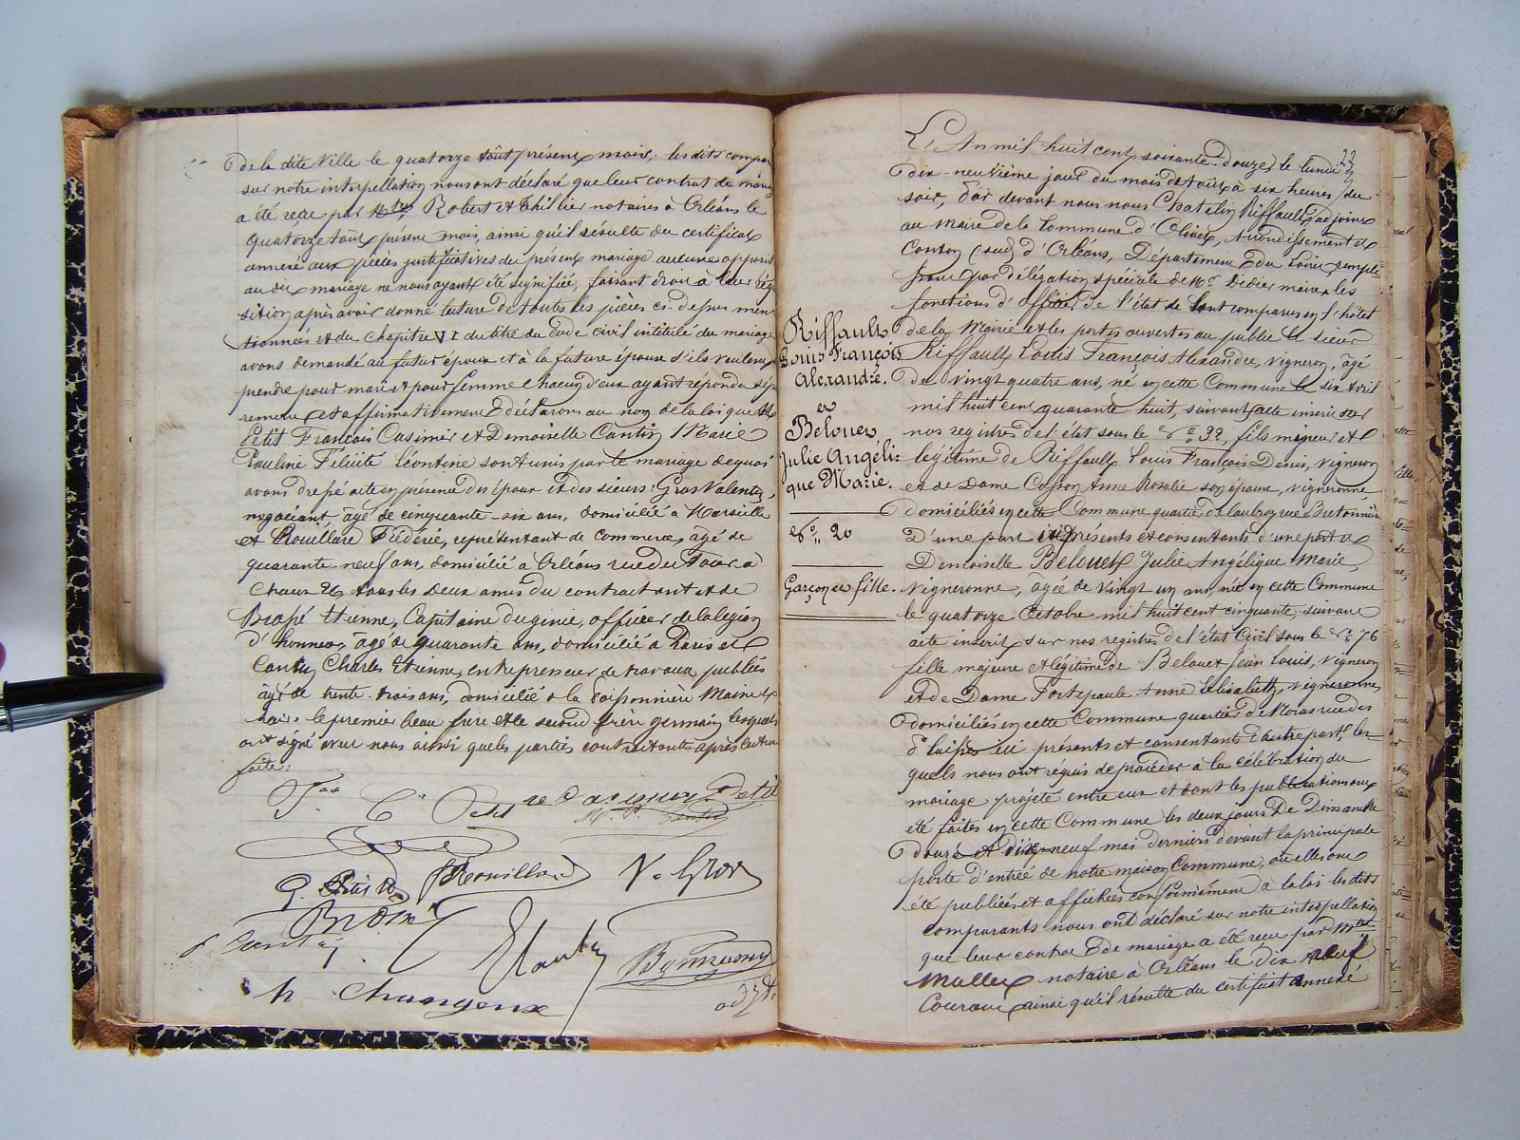 de la dite Ville le quatorze août présent mois, les dits compa
sur notre interpellation nous ont déclaré que leur contrat de maria
a été reçu par Mtres Robert et Thillier notaires à Orléans le
quatorze août présent mois, ainsi qu'il résulte du certificat
annexé aux pièces justificatives du présent mariage aucune opposi
au dit mariage ne nous ayant été signifiée, faisant droit à leur réqui
sition après avoir donné lecture de toutes les pièces ci-dessus men
tionnées et du chapitre VI du titre du Code civil intitulé du mariage
avons demandé au futur époux et à la future épouse s'ils veulent
prendre pour mari et pour femme chacun d'eux ayant répondu sépa
rement et affirmativement déclarons au nom de la loi que
Petit François Casimir et Demoiselle Cantin Marie
Pauline Félicité Léontine sont unis par le mariage de quoi
avons dressé acte en présence des époux et des sieurs Gros Valentin,
négociant, âgé de cinquante-six ans, domicilié à Marseille
et Rouillard Frédéric, représentant de commerce, âgé de
quarante neuf ans, domicilié à Orléans rue du Four à
Chaux 26 tous les deux amis du contractant et de
Étienne, Capitaine du génie, officier de la légion
d'honneur, âgé de quarante ans, domicilié à Paris et
Cantin Charles Étienne, entrepreneur de travaux publics
âgé de trente-trois ans, domicilié à la Maine et
Loire le premier beau frère et le second frère germain lesquels
ont signé avec nous ainsi que les parties contractantes après lecture
faite.
Petit
Rouillard V. Gros
Cantin
h Changeux
22
L'An mil huit cent soixante-douze, le lundi
dix-neuvième jour du mois d'août à six heures du
soir, Par devant nous Chatelin Riffault adjoint
au Maire de la Commune d'Olivet, Arrondissement et
Canton (sud) d'Orléans, Département du Loiret remplis
sant par délégation spéciale de Mr Didier maire les
fonctions d'Officier de l'état civil sont comparus en l'hôtel
de la Mairie et les portes ouvertes au public le sieur
Riffault Louis François Alexandre, vigneron, âgé
de vingt quatre ans, né en cette Commune le six avril
mil huit cent quarante huit, suivant acte inscrit sur
nos registres de l'état sous le No 32, fils majeur et
légitime de Riffault Louis François Denis, vigneron
et de Dame Anne Rosalie son épouse, vigneronne
domiciliés en cette Commune quartier de
D'une part ici présents et consentants d'une part et
Demoiselle Belouet Julie Angélique Marie,
vigneronne, âgée de vingt un ans, née en cette Commune
le quatorze Octobre mil huit cent cinquante, suivant
acte inscrit sur nos registres de l'état Civil sous le No 76
fille majeure et légitime de Belouet Jean Louis, vigneron
et de Dame Fortepaule Anne Elisabeth, vigneronne
domiciliés en cette Commune quartier de rue des
ici présents et consentants d'autre part, les-
quels nous ont requis de procéder à la célébration du
mariage projeté entre eux et dont les publications ont
été faites en cette Commune les deux jours de Dimanche
douze et dix-neuf mai derniers devant la principale
porte d'entrée de notre maison Commune, où elles ont
été publiées et affichées conformément à la loi les dits
comparants nous ont déclaré sur notre interpellation
que leur contrat de mariage a été reçu par Mtre
Mallet notaire à Orléans le dix neuf
Courant ainsi qu'il résulte du certificat annexé
Riffault
Louis François
Alexandre.
et
Belouet
Julie Angéli=
que Marie.
No 20
Garçon et fille.